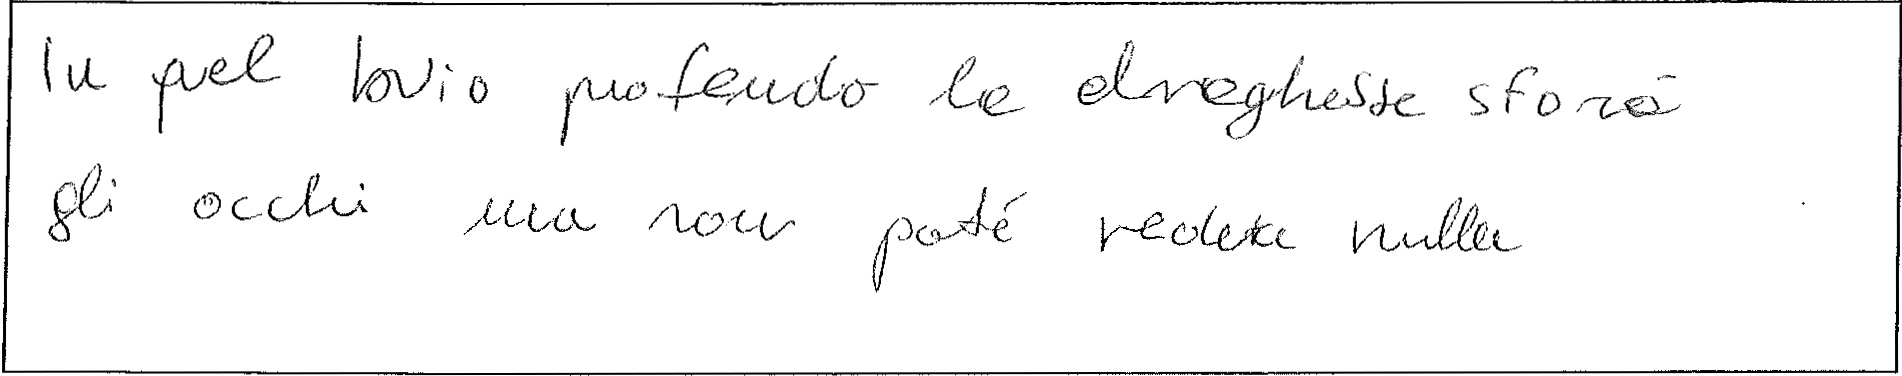 In quel bvio profondo la draghessa sforzò
gli occhi ma non poté vedere nulla